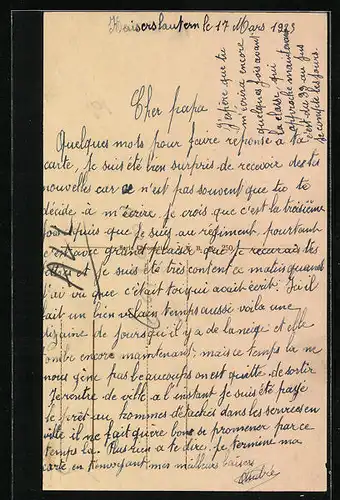 Kaiserslautern le 17 Mars 1923
Cher papa
Quelques mots pour faire reponse à ta
carte, je suis été bien surpris de recevoir des tes
nouvelles car ce n'est pas souvent que tu te
décide à m'écrire, je crois que c'est la troisième
fois depuis que je suis au régiment, pourtant
c'est avec grand plaisir que je recevrais tes
je suis été très content ce matin quand
j'ai vu que c'était toi qui avait écrit. Ici il
fait un bien vilain temps aussi voila une
dizaine de jours qu'il y a de la neige et elle
tombe encore maintenant, mais ce temps la ne
nous gène pas beaucoup on est quitte de sortir
Je rentre de ville a l'instant je suis été payé
le prêt au hommes détachés dans les services en
ville il ne fait guère bon se promener par ce
temps la. Plus rien a te dire je termine ma
carte en t'envoyant mes meilleurs baisers
J'espère que tu
m'écrira encore
quelques fois avant
la classe, qui
approche maintenant
c'est du 39 au jus
se compte les jours.